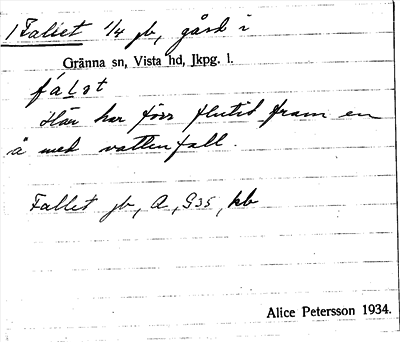 1 Fallet 1/4 jb, gård i
Gränna sn, Vista hd, Jkpg. l.
fálət
Här har förr flutid fram en
å med vattenfall.
Fallet jb, A, G35, kb
Alice Petersson 1934.